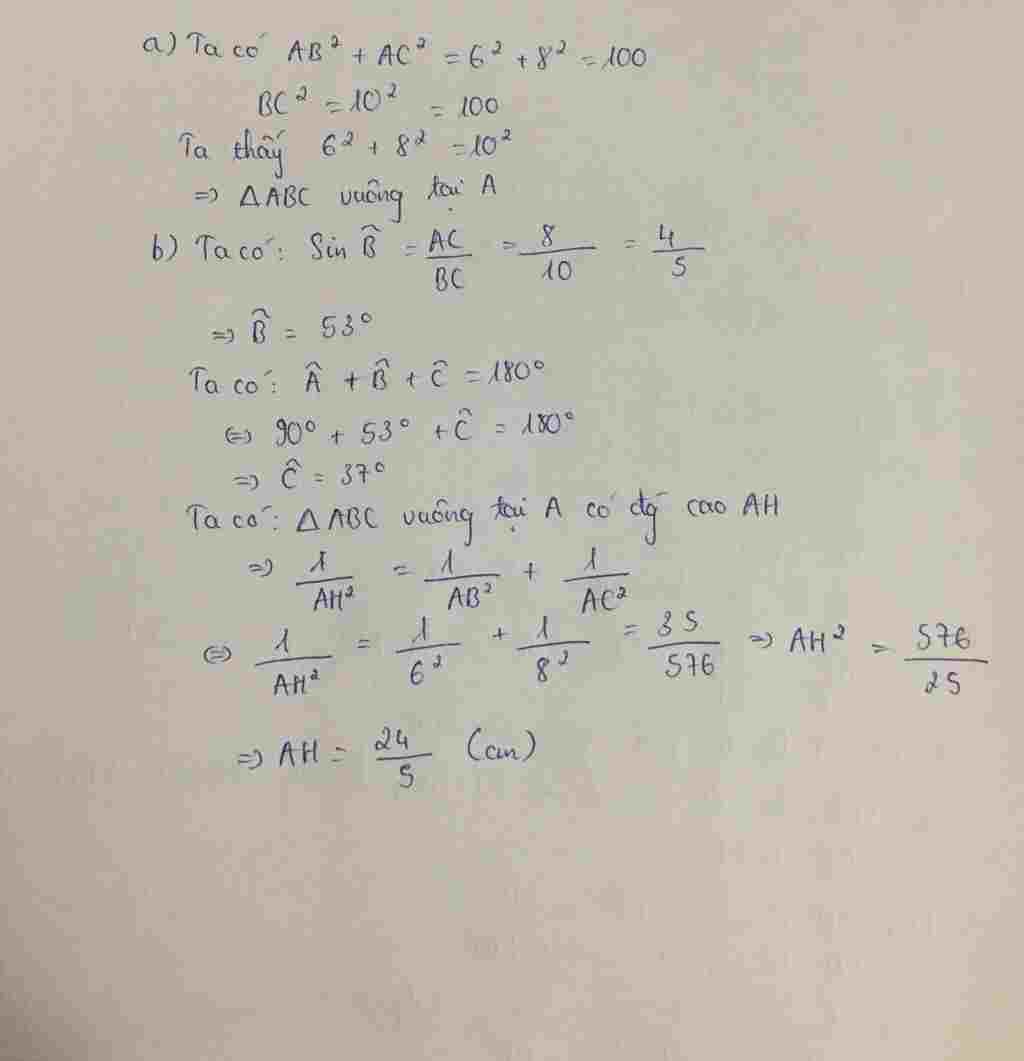 a) Ta có AB² + AC² = 6² + 8² = 100
BC² = 10² = 100
Ta thấy 6² + 8² = 10²
=> ΔABC vuông tại A
b) Ta có: Sin B̂ = AC/BC = 8/10 = 4/5
=> B̂ = 53°
Ta có: Â + B̂ + Ĉ = 180°
<=> 90° + 53° + Ĉ = 180°
=> Ĉ = 37°
Ta có: ΔABC vuông tại A có đg cao AH
=> 1/AH² = 1/AB² + 1/AC²
<=> 1/AH² = 1/6² + 1/8² = 35/576 => AH² = 576/25
=> AH = 24/5 (cm)